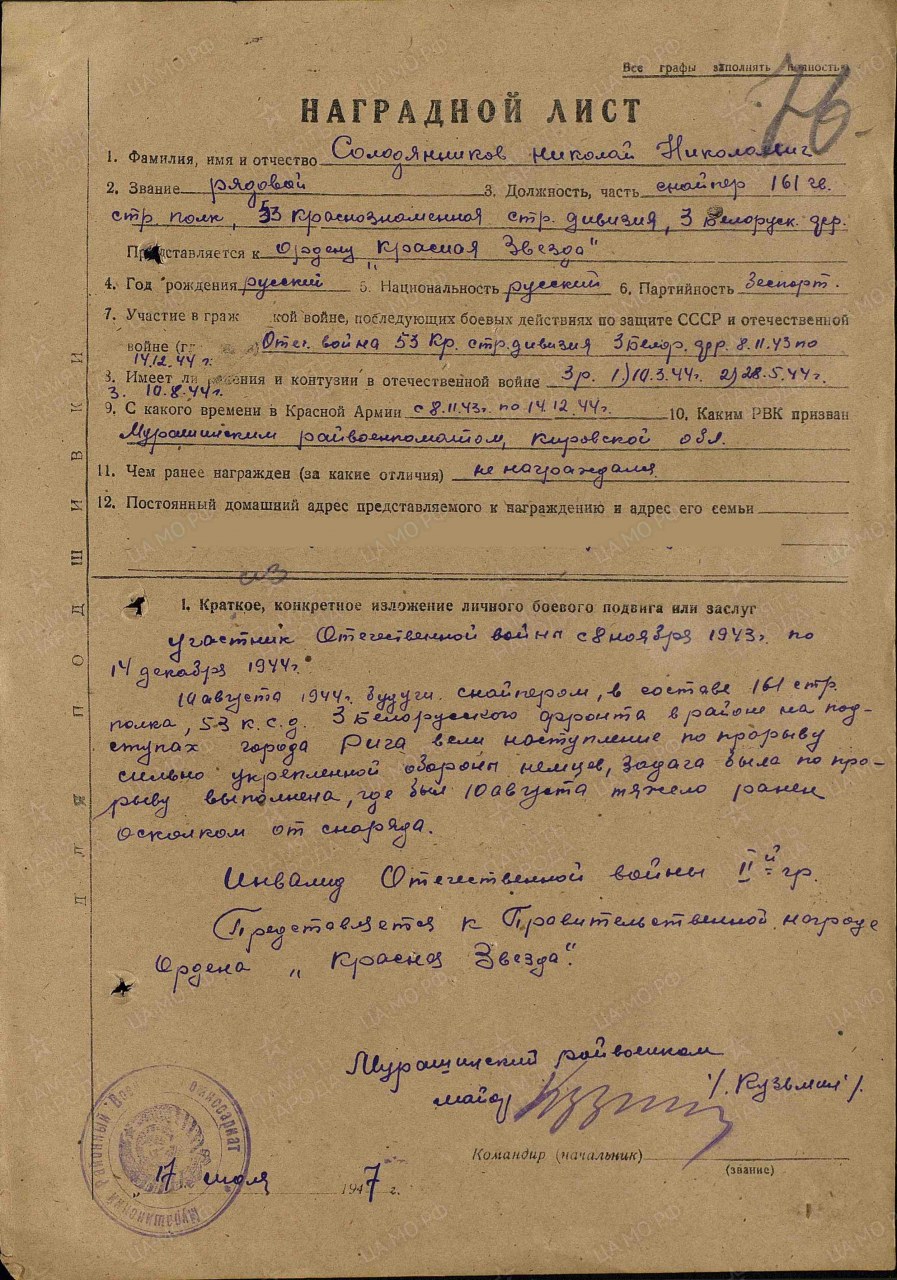 Все графы заполнять
76
НАГРАДНОЙ ЛИСТ
1. Фамилия, имя и отчество Солодянников Николай Николаевич
2. Звание рядовой 3. Должность, часть снайпер 161 гв.
стр. полк, 53 краснознаменная стр. дивизия, 3 Белоруск. фр.
Представляется к Ордену „Красная Звезда"
4. Год рождения русский 5. Национальность русский 6. Партийность
7. Участие в граж кой войне, последующих боевых действиях по защите СССР и отечественной
войне Отеч. война 53 Кр. стр. дивизия 3 Белор. фр. 8.11.43 по
14.12.44 г.
8. Имеет ли ения и контузии в отечественной войне 3 р. 1) 10.3.44 г. 2) 28.5.44 г.
3. 10.8.44 г.
9. С какого времени в Красной Армии с 8.11.43 г. по 14.12.44 г. 10. Каким РВК призван
Мурашинским райвоенкоматом, Кировской обл.
11. Чем ранее награжден (за какие отличия) не награждался
12. Постоянный домашний адрес представляемого к награждению и адрес его семьи
1. Краткое, конкретное изложение личного боевого подвига или заслуг
Участник Отечественной войны с 8 ноября 1943 г. по
14 декабря 1944 г.
10 августа 1944 г. будучи снайпером, в составе 161 стр.
полка, 53 к.с.д. 3 Белорусского фронта в районе на под-
ступах города Рига вели наступление по прорыву
сильно укрепленной обороны немцев, задача была по про-
рыву выполнена, где был 10 августа тяжело ранен
осколком от снаряда.
Инвалид Отечественной войны II-й гр.
Представляется к Правительственной награде
Ордена „Красная Звезда".
Мурашинский райвоенком
майор /Кузьмин/.
Командир (начальник)
(звание)
„17 июля 1947 г.
Мурашинский Районный Военный Комиссариат
ДЛЯ ПОДШИВКИ
ЦАМО РФ